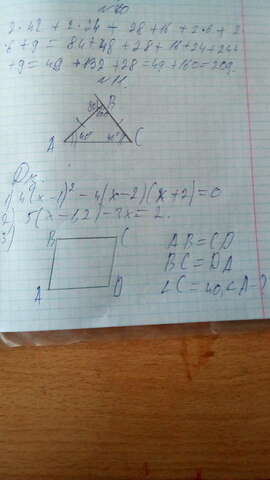 №10
2·42 + 2·24 + 28+16 + 2·6 + 2·
6+9 = 84+48+28+16+24+24+
+9= 49+132+28=49+160=209.
№11.
B
A
40°
C
Дз.
1) 4(x-1)² - 4(x-2)(x+2)=0
2) 5(x-1,2)-3x=2.
3)
B
C
AB=CD
BC=DA
A
D
∠C=40, ∠A-?